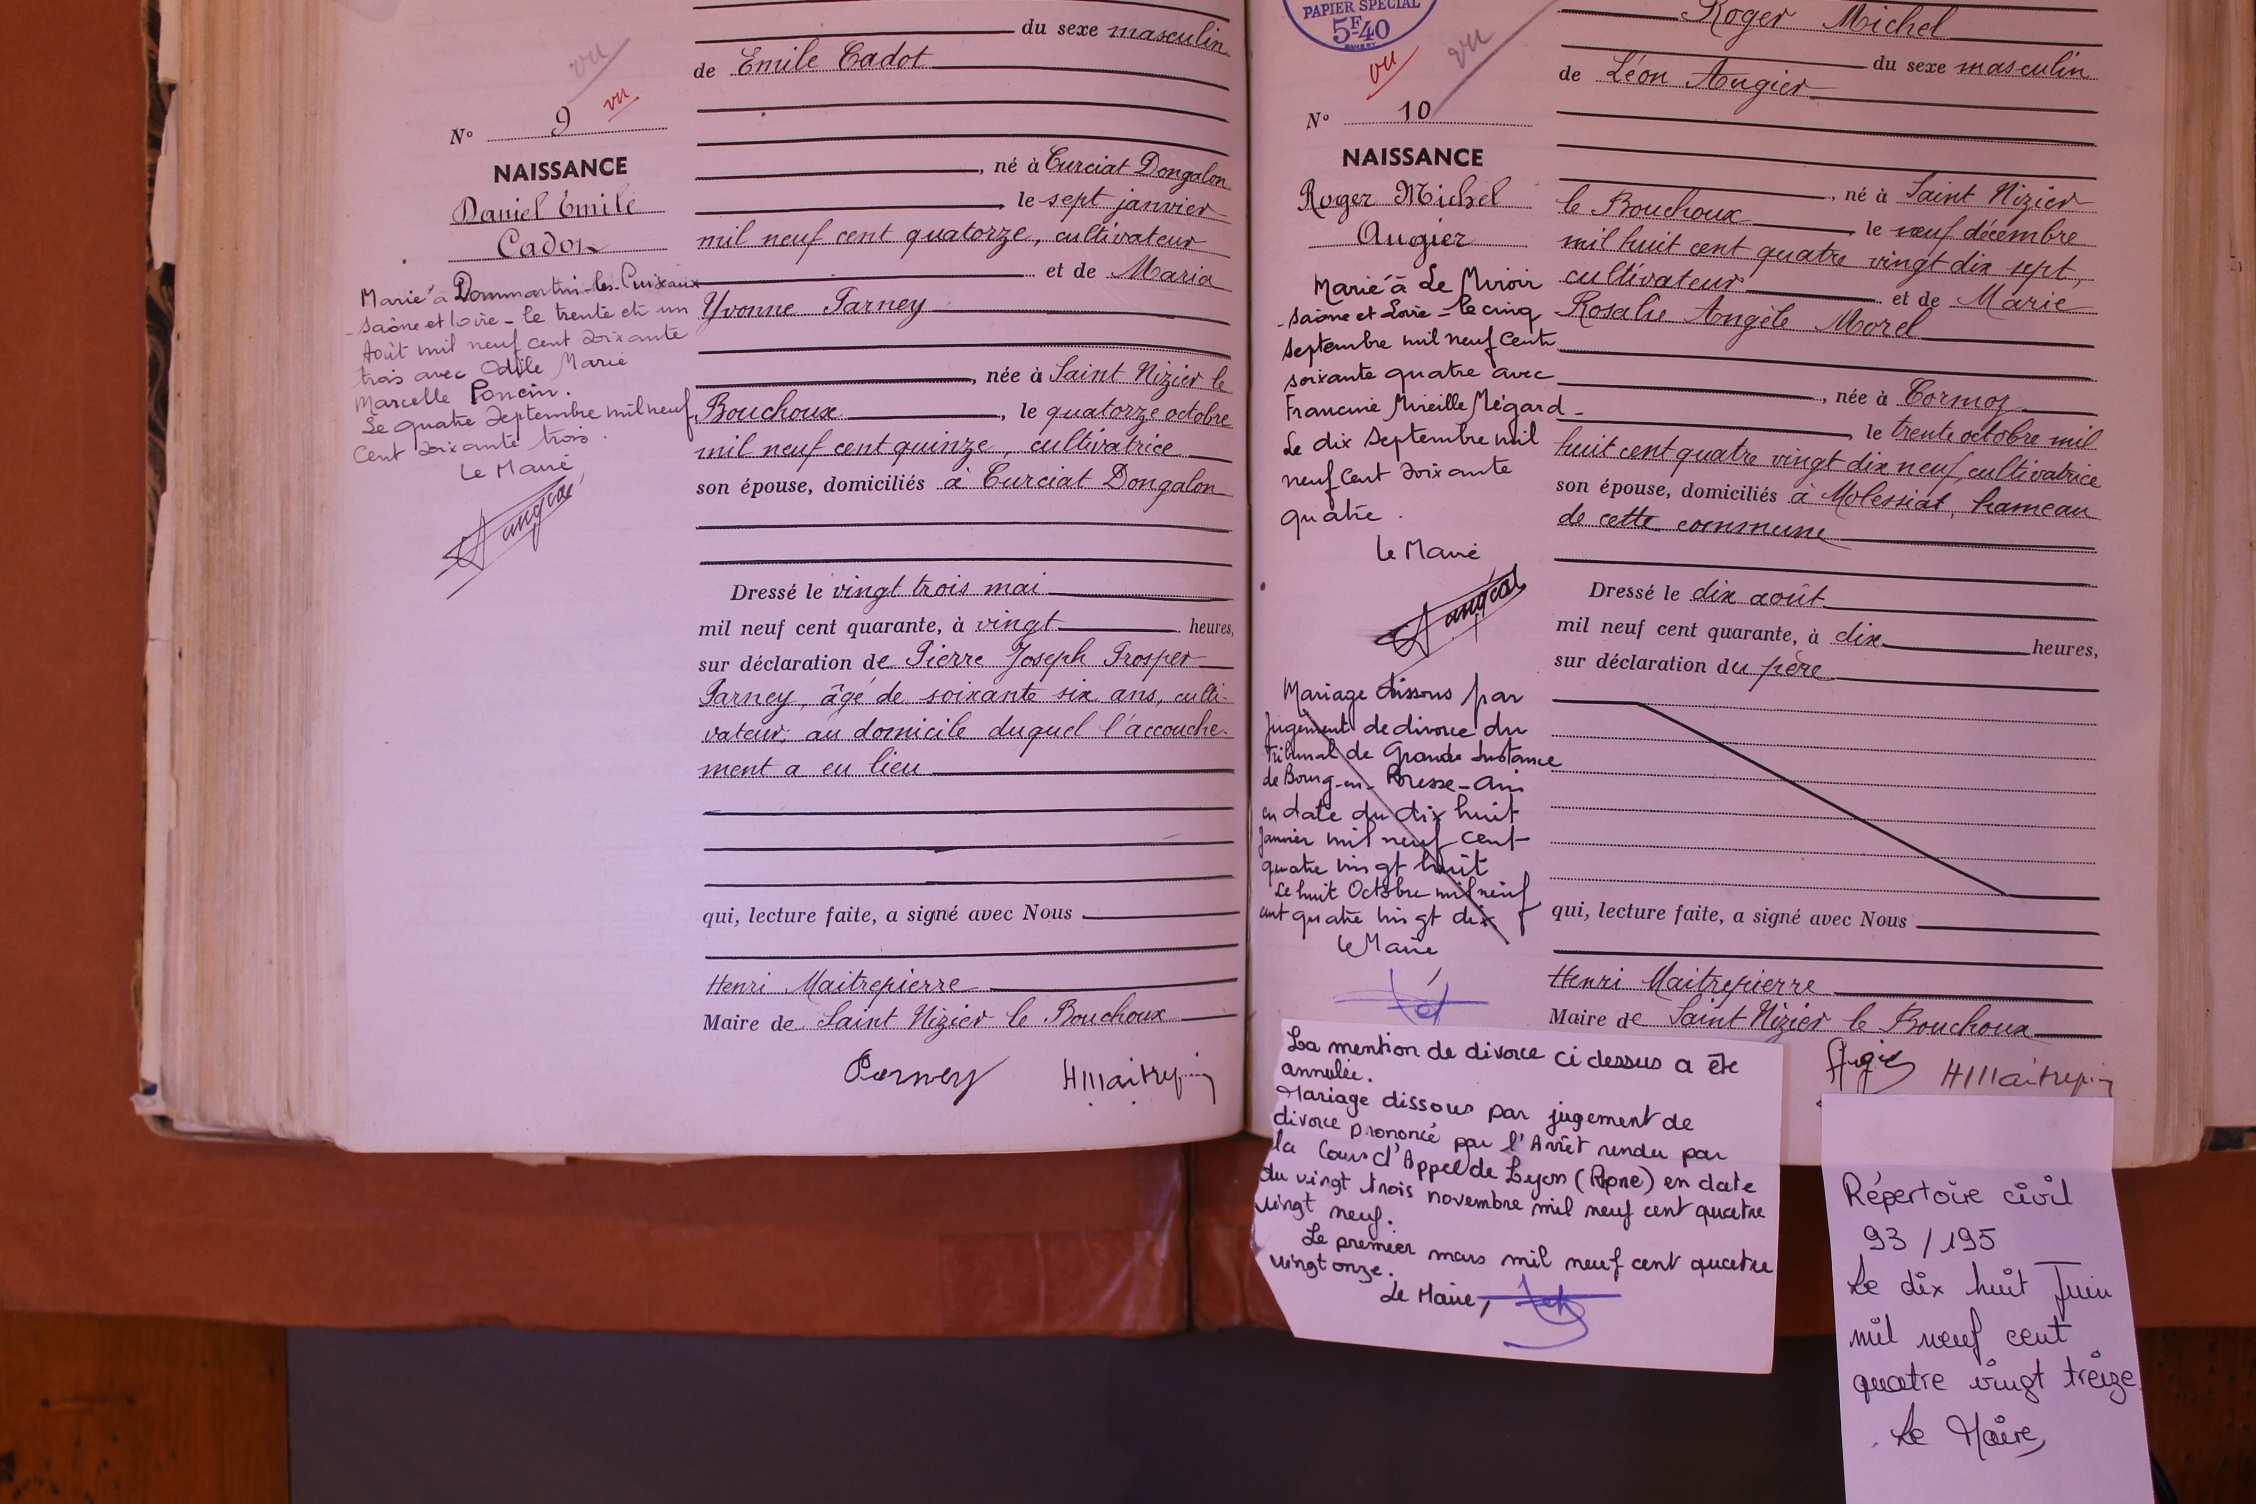 du sexe masculin
de Emile Cadot
vu
vu
N° 9
NAISSANCE
Daniel Emile
Cadot
, né à Curciat Dongalon
le sept janvier
mil neuf cent quatorze, cultivateur
et de Maria
Yvonne Parney
, née à Saint Nizier le
Bouchoux, le quatorze octobre
mil neuf cent quinze, cultivatrice
son épouse, domiciliés à Curciat Dongalon
Marié à Dommartin-les-Cuiseaux
- Saône et Loire - le trente et un
Août mil neuf cent soixante
trois avec Odile Marie
Marcelle Poncin.
Le quatre Septembre mil neuf
Cent soixante trois.
Le Maire,
Dressé le vingt trois mai
mil neuf cent quarante, à vingt heures,
sur déclaration de Pierre Joseph Prosper
Parney, âgé de soixante six ans, culti-
vateur, au domicile duquel l'accouche-
ment a eu lieu
qui, lecture faite, a signé avec Nous
Henri Maitrepierre
Maire de Saint Nizier le Bouchoux
Parney HMaitrepierre
PAPIER SPECIAL
5F40
vu
vu
Roger Michel
du sexe masculin
de Léon Augier
N° 10
NAISSANCE
Roger Michel
Augier
, né à Saint Nizier
le Bouchoux le neuf décembre
mil huit cent quatre vingt dix sept,
cultivateur et de Marie
Rosalie Angèle Morel
, née à Cormoz
, le trente octobre mil
huit cent quatre vingt dix neuf, cultivatrice
son épouse, domiciliés à Molessiat, hameau
de cette commune
Marié à Le Miroir
- Saône et Loire - le cinq
Septembre mil neuf Cent
soixante quatre avec
Francine Mireille Mégard -
Le dix Septembre mil
neuf Cent soixante
quatre.
Le Maire
Mariage dissous par
jugement de divorce du
Tribunal de Grande Instance
de Bourg-en-Bresse-Ain
en date du dix huit
Janvier mil neuf cent
quatre vingt huit
Le huit Octobre mil neuf
cent quatre vingt dix
Le Maire
Dressé le dix août
mil neuf cent quarante, à dix heures,
sur déclaration du père
qui, lecture faite, a signé avec Nous
Henri Maitrepierre
Maire de Saint Nizier le Bouchoux
Augier HMaitrepierre
La mention de divorce ci dessus a été
annulée.
Mariage dissous par jugement de
divorce prononcé par l'Arrêt rendu par
la Cour d'Appel de Lyon (Rhône) en date
du vingt trois novembre mil neuf cent quatre
vingt neuf.
Le premier mars mil neuf cent quatre
vingt onze.
Le Maire,
Répertoire civil
93 / 195
Le dix huit Juin
mil neuf cent
quatre vingt treize
Le Maire,